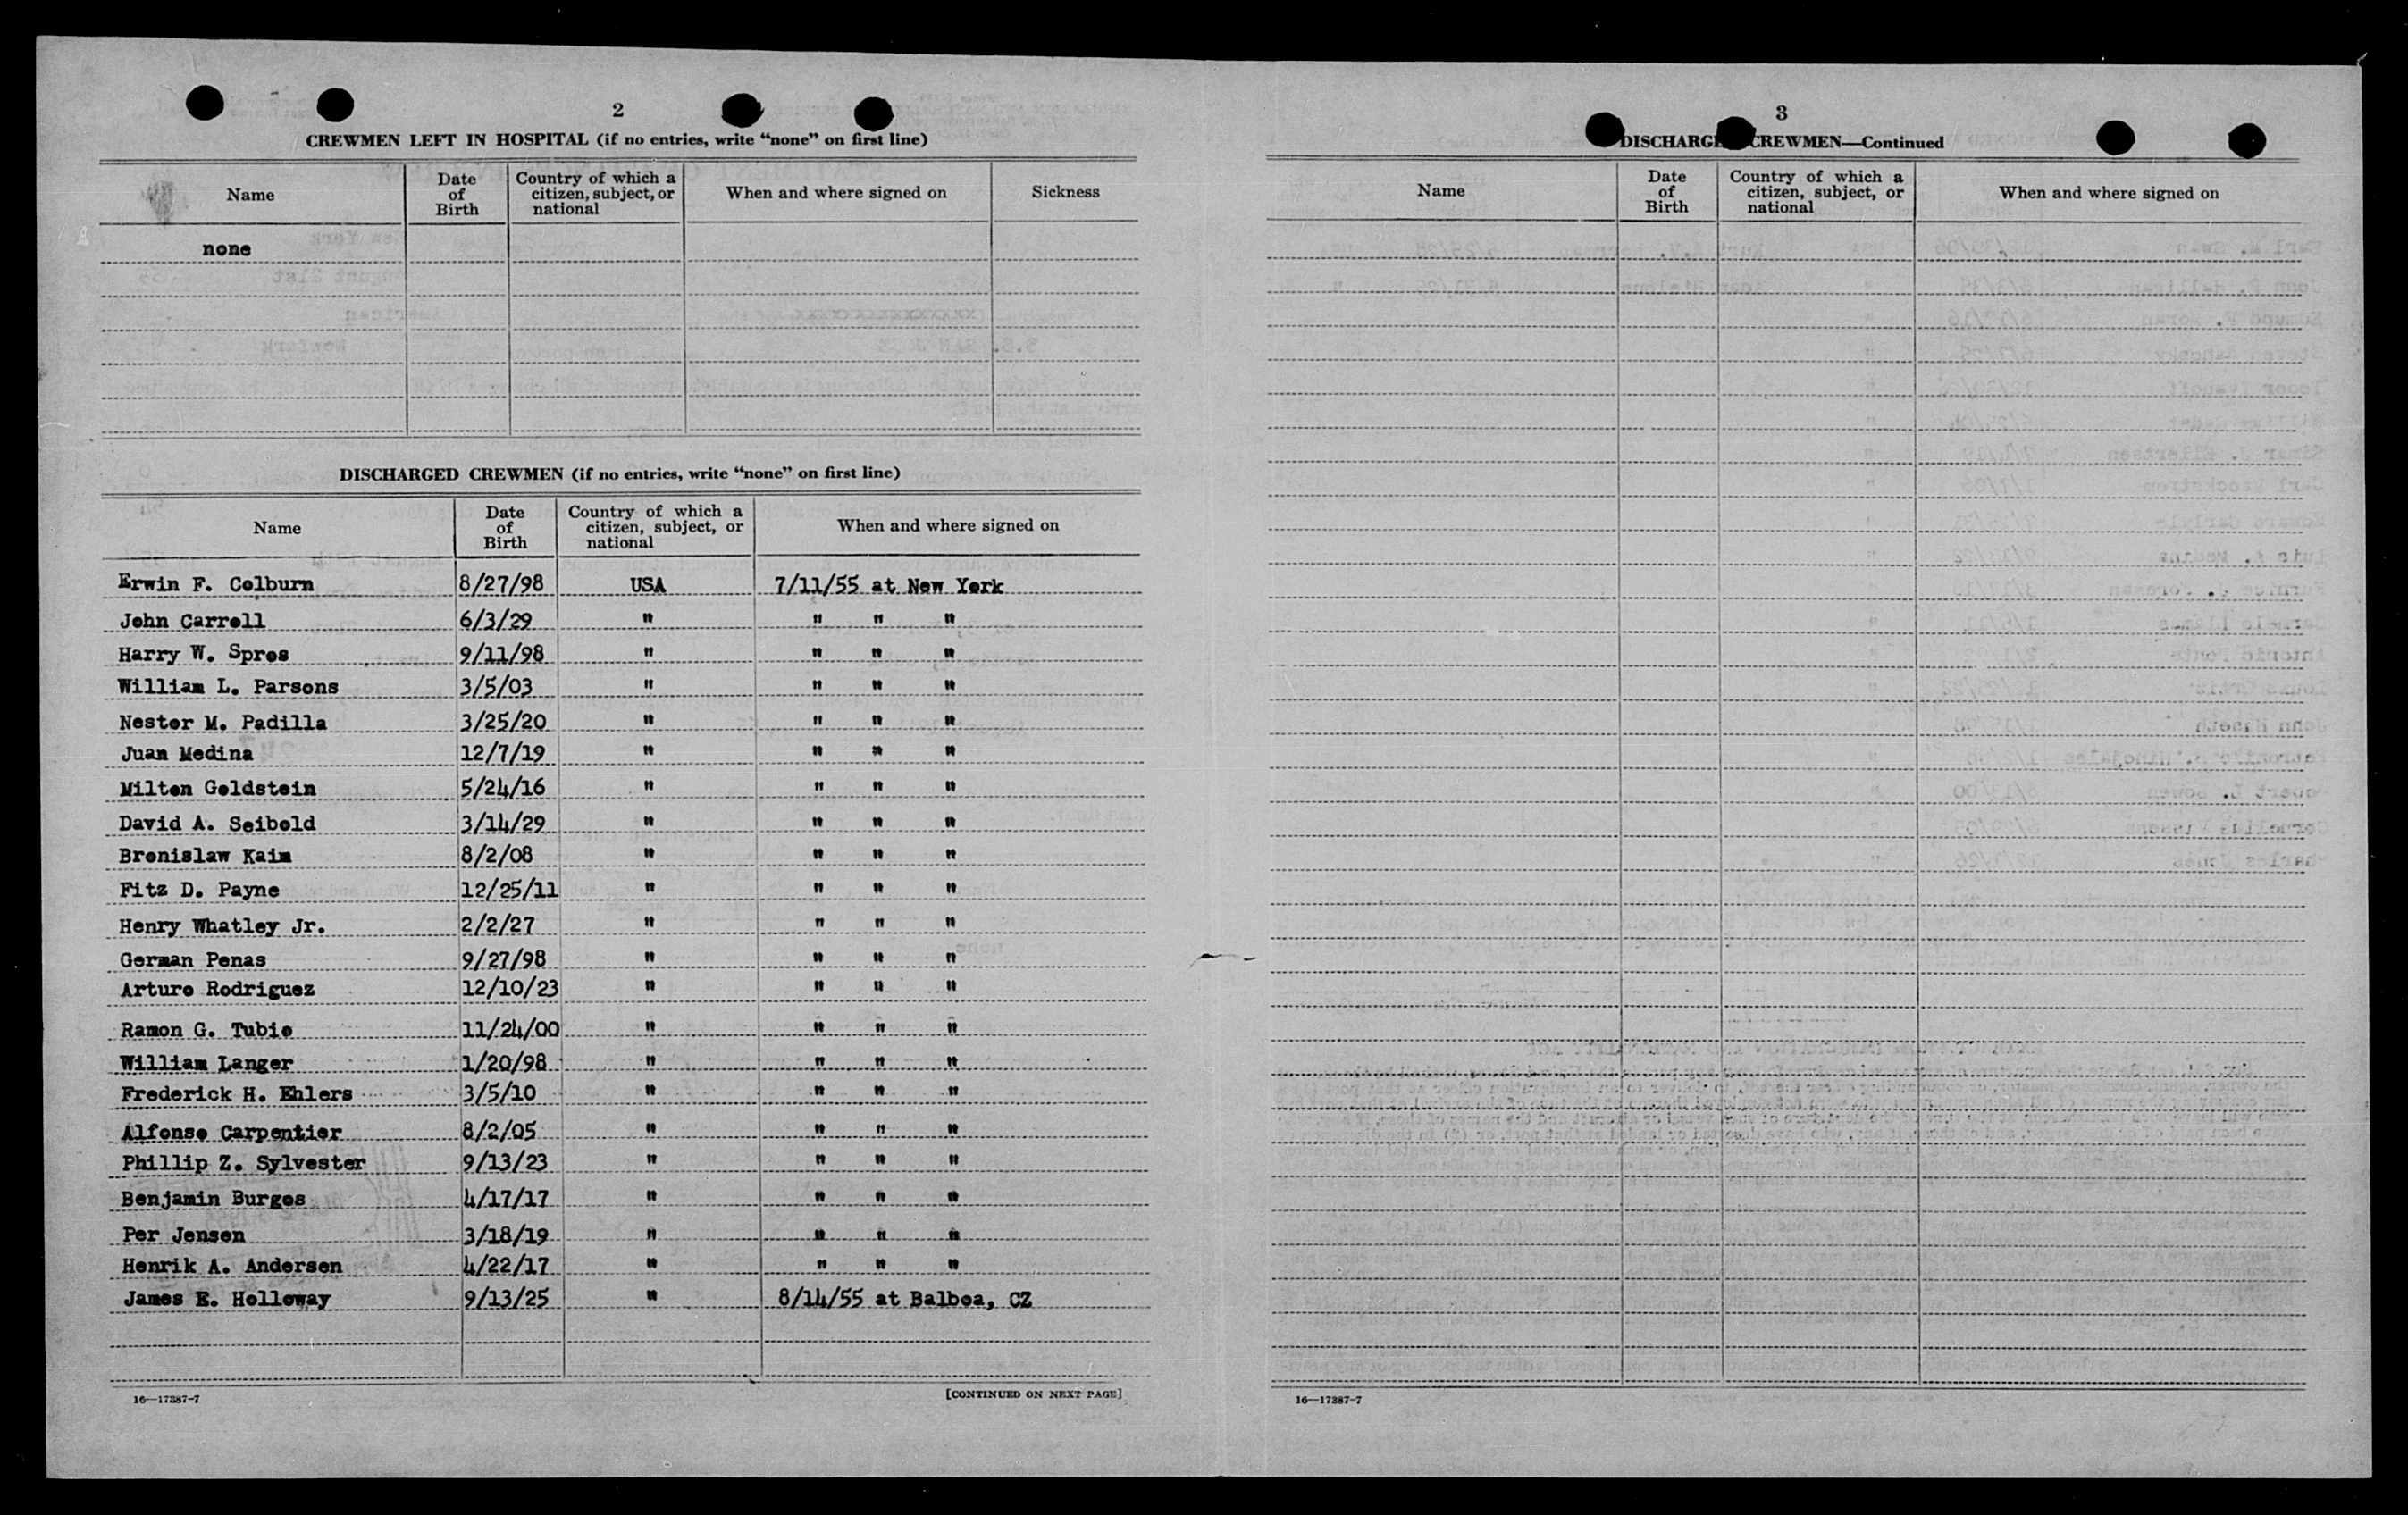 2
CREWMEN LEFT IN HOSPITAL (if no entries, write “none” on first line)
Name Date of Birth Country of which a citizen, subject, or national When and where signed on Sickness
none
DISCHARGED CREWMEN (if no entries, write “none” on first line)
Name Date of Birth Country of which a citizen, subject, or national When and where signed on
Erwin F. Colburn 8/27/98 USA 7/11/55 at New York
John Carroll 6/3/29 " " " "
Harry W. Spros 9/11/98 " " " "
William L. Parsons 3/5/03 " " " "
Nestor M. Padilla 3/25/20 " " " "
Juan Medina 12/7/19 " " " "
Milton Goldstein 5/24/16 " " " "
David A. Seibold 3/14/29 " " " "
Bronislaw Kaim 8/2/08 " " " "
Fitz D. Payne 12/25/11 " " " "
Henry Whatley Jr. 2/2/27 " " " "
German Penas 9/27/98 " " " "
Arturo Rodriguez 12/10/23 " " " "
Ramon G. Tubio 11/24/00 " " " "
William Langer 1/20/98 " " " "
Frederick H. Ehlers 3/5/10 " " " "
Alfonso Carpentier 8/2/05 " " " "
Phillip Z. Sylvester 9/13/23 " " " "
Benjamin Burgos 4/17/17 " " " "
Per Jensen 3/18/19 " " " "
Henrik A. Andersen 4/22/17 " " " "
James E. Holloway 9/13/25 " 8/14/55 at Balboa, CZ
16—17387-7 [CONTINUED ON NEXT PAGE]
3
DISCHARGED CREWMEN—Continued
Name Date of Birth Country of which a citizen, subject, or national When and where signed on
16—17387-7